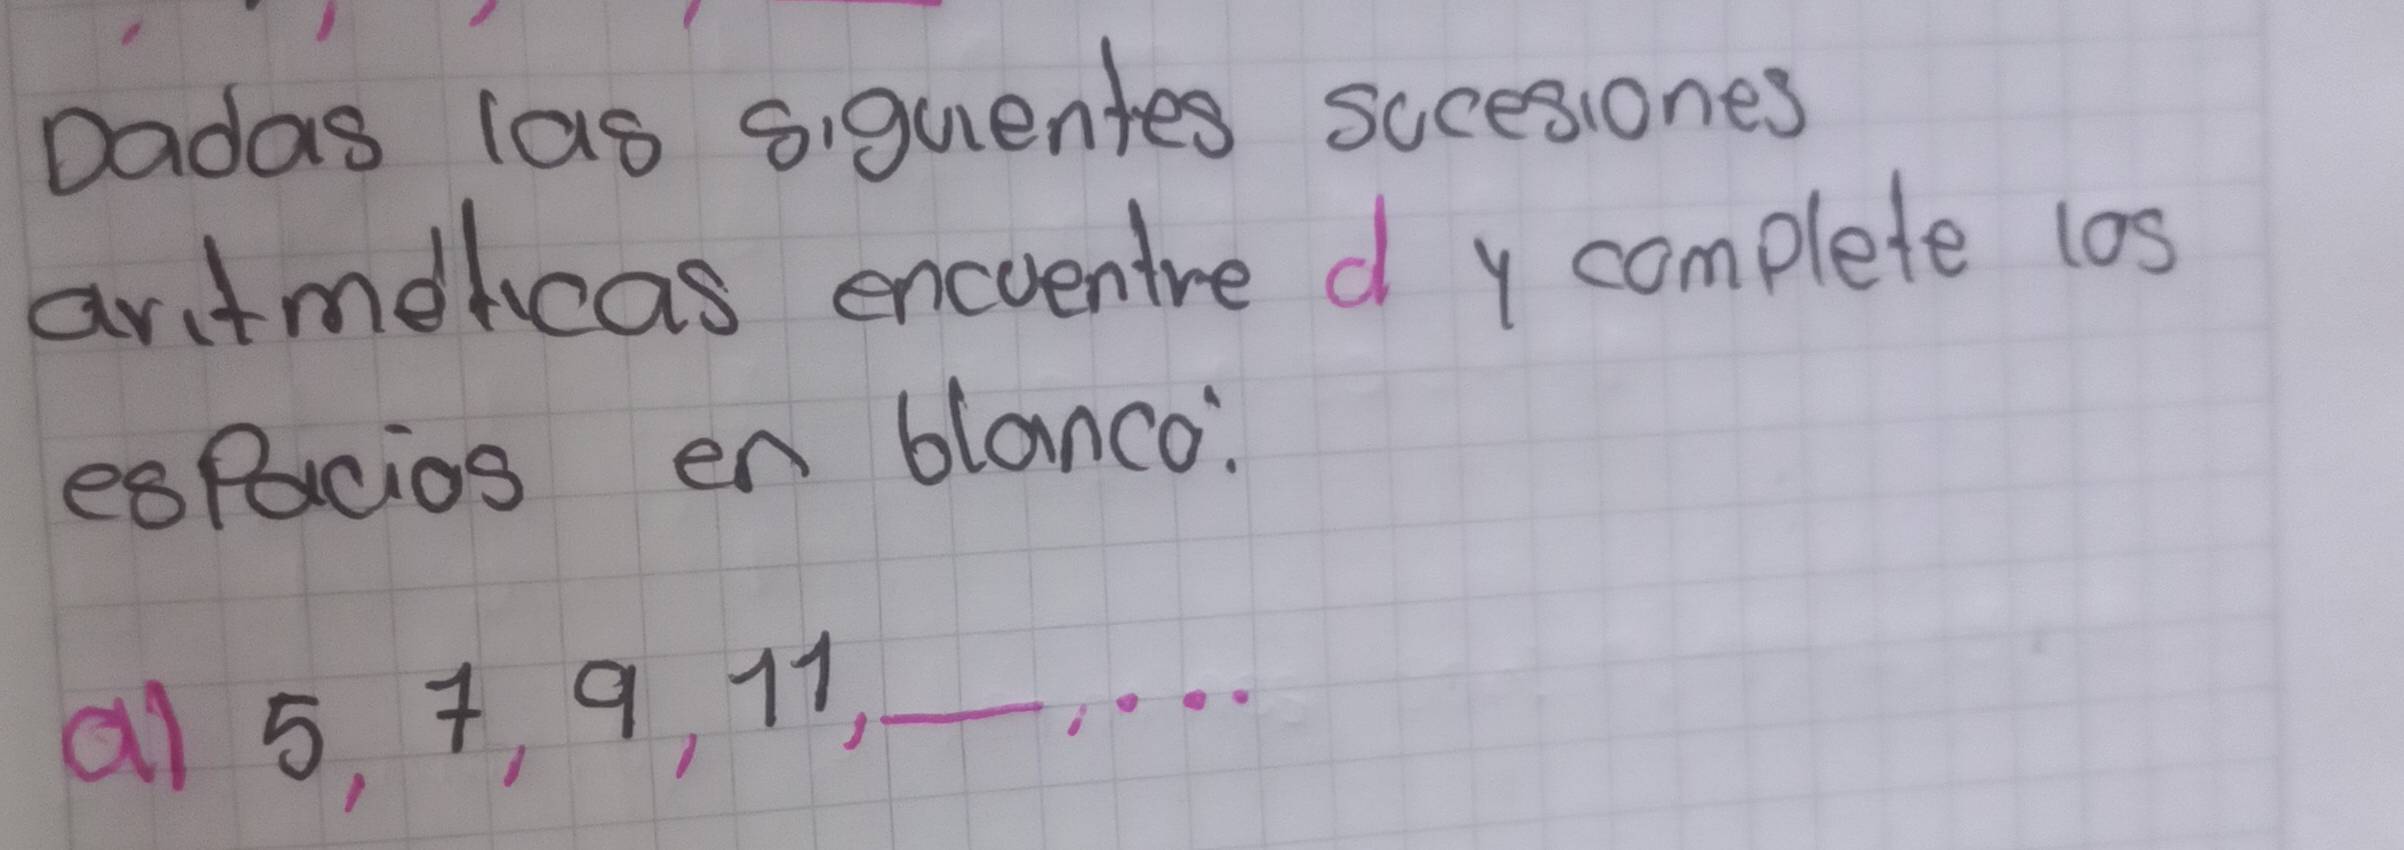 Dadas las siguientes sucesiones
aritméticas encuentre d y complete los
espacios en blanco:
a) 5, 7, 9, 11, ___, ...